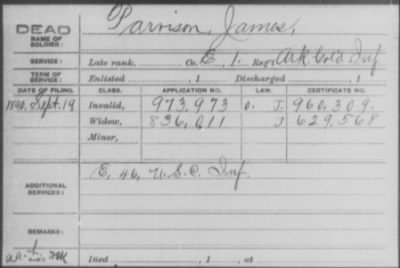 DEAD
NAME OF SOLDIER:
Parvison, James,
SERVICE: Late rank, Co. E, 1. Reg't Ark Col'd Inf.
TERM OF SERVICE: Enlisted , 1 Discharged , 1
DATE OF FILING. CLASS. APPLICATION NO. LAW. CERTIFICATE NO.
1890. Sept. 19 Invalid, 973,973 J. 960,309.
Widow, 836,011 J 629,568
Minor,
E, 46, U.S.C. Inf.
ADDITIONAL SERVICES:
REMARKS:
Died , 1 , at